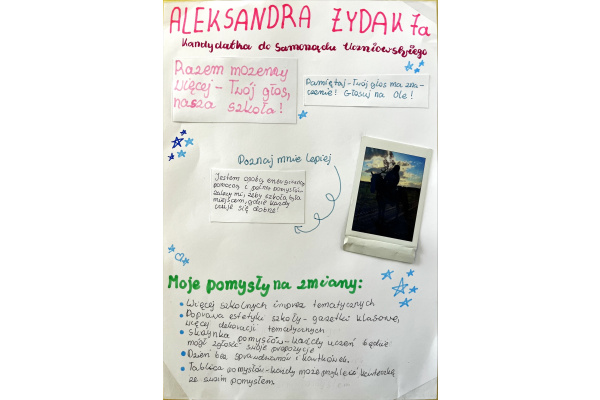 ALEKSANDRA ŻYDAK 7a
Kandydatka do Samorządu Uczniowskiego
Razem możemy
więcej - Twój głos,
nasza szkoła!
Pamiętaj - Twój głos ma zna-
czenie! Głosuj na Olę!
Poznaj mnie lepiej
Jestem osobą energiczną
pomocną i pełną pomysłów.
Zależy mi, żeby szkoła była
miejscem, gdzie każdy
czuje się dobrze!
Moje pomysły na zmiany:
Więcej szkolnych imprez tematycznych
Poprawa estetyki szkoły - gazetki klasowe,
więcej dekoracji tematycznych
Skrzynka pomysłów - każdy uczeń będzie
mógł zgłosić swoje propozycje
Dzień bez sprawdzianów i kartkówek
Tablica pomysłów - każdy może przykleić karteczkę
ze swoim pomysłem